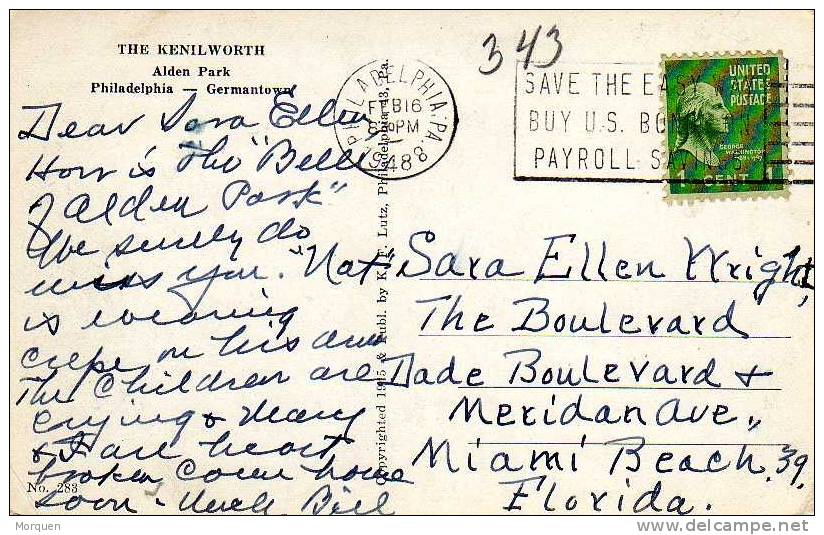 THE KENILWORTH
Alden Park
Philadelphia — Germantown
343
PHILADELPHIA, PA.
FEB 16
PM
1948
SAVE THE EASY
BUY U.S. BON
PAYROLL SAV
UNITED
STATES
POSTAGE
GEORGE
WASHINGTON
1 CENT 1
Dear Sara Ellen
How is the "Belle
of Alden Park"
We surely do
miss you. "Nat"
is wearing
crepe on his arm
The Children are
crying & Mary
& I are heart
broken come home
soon - Uncle Bill
Copyrighted 1945 & Publ. by K. F. Lutz, Philadelphia 43, Pa.
Sara Ellen Wright,
The Boulevard
Dade Boulevard &
Meridan Ave.,
Miami Beach. 39.
Florida.
No. 283
Morquen
delcampe.net